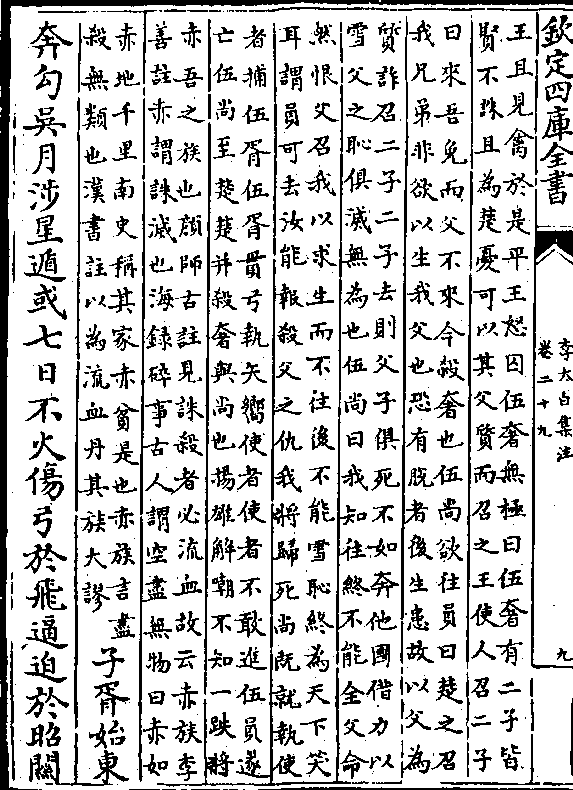 欽定四庫全書
李太白集注
卷二十九
九
王且見禽於是平王怒囚伍奢無極曰伍奢有二子皆
賢不誅且為楚憂可以其父質而召之王使人召二子
曰來吾免而父不來今殺奢也伍尚欲往員曰楚之召
我兄弟非欲以生我父也恐有脫者後生患故以父為
質詐召二子二子去則父子俱死不如奔他國借力以
雪父之恥俱滅無為也伍尚曰我知往終不能全父命
然恨父召我以求生而不往後不能雪恥終為天下笑
耳謂員可去汝能報殺父之仇我將歸死尚既就執使
者捕伍胥伍胥貫弓執矢嚮使者使者不敢進伍員遂
亡伍尚至楚楚并殺奢與尚也揚雄解嘲不知一跌將
赤吾之族也顔師古註見誅殺者必流血故云赤族李
善註赤謂誅滅也海録碎事古人謂空盡無物曰赤如
赤地千里南史稱其家赤貧是也赤族言盡
殺無類也漢書註以為流血丹其族大謬
子胥始東
奔勾吳月涉星遁或七日不火傷弓於飛逼迫於昭關